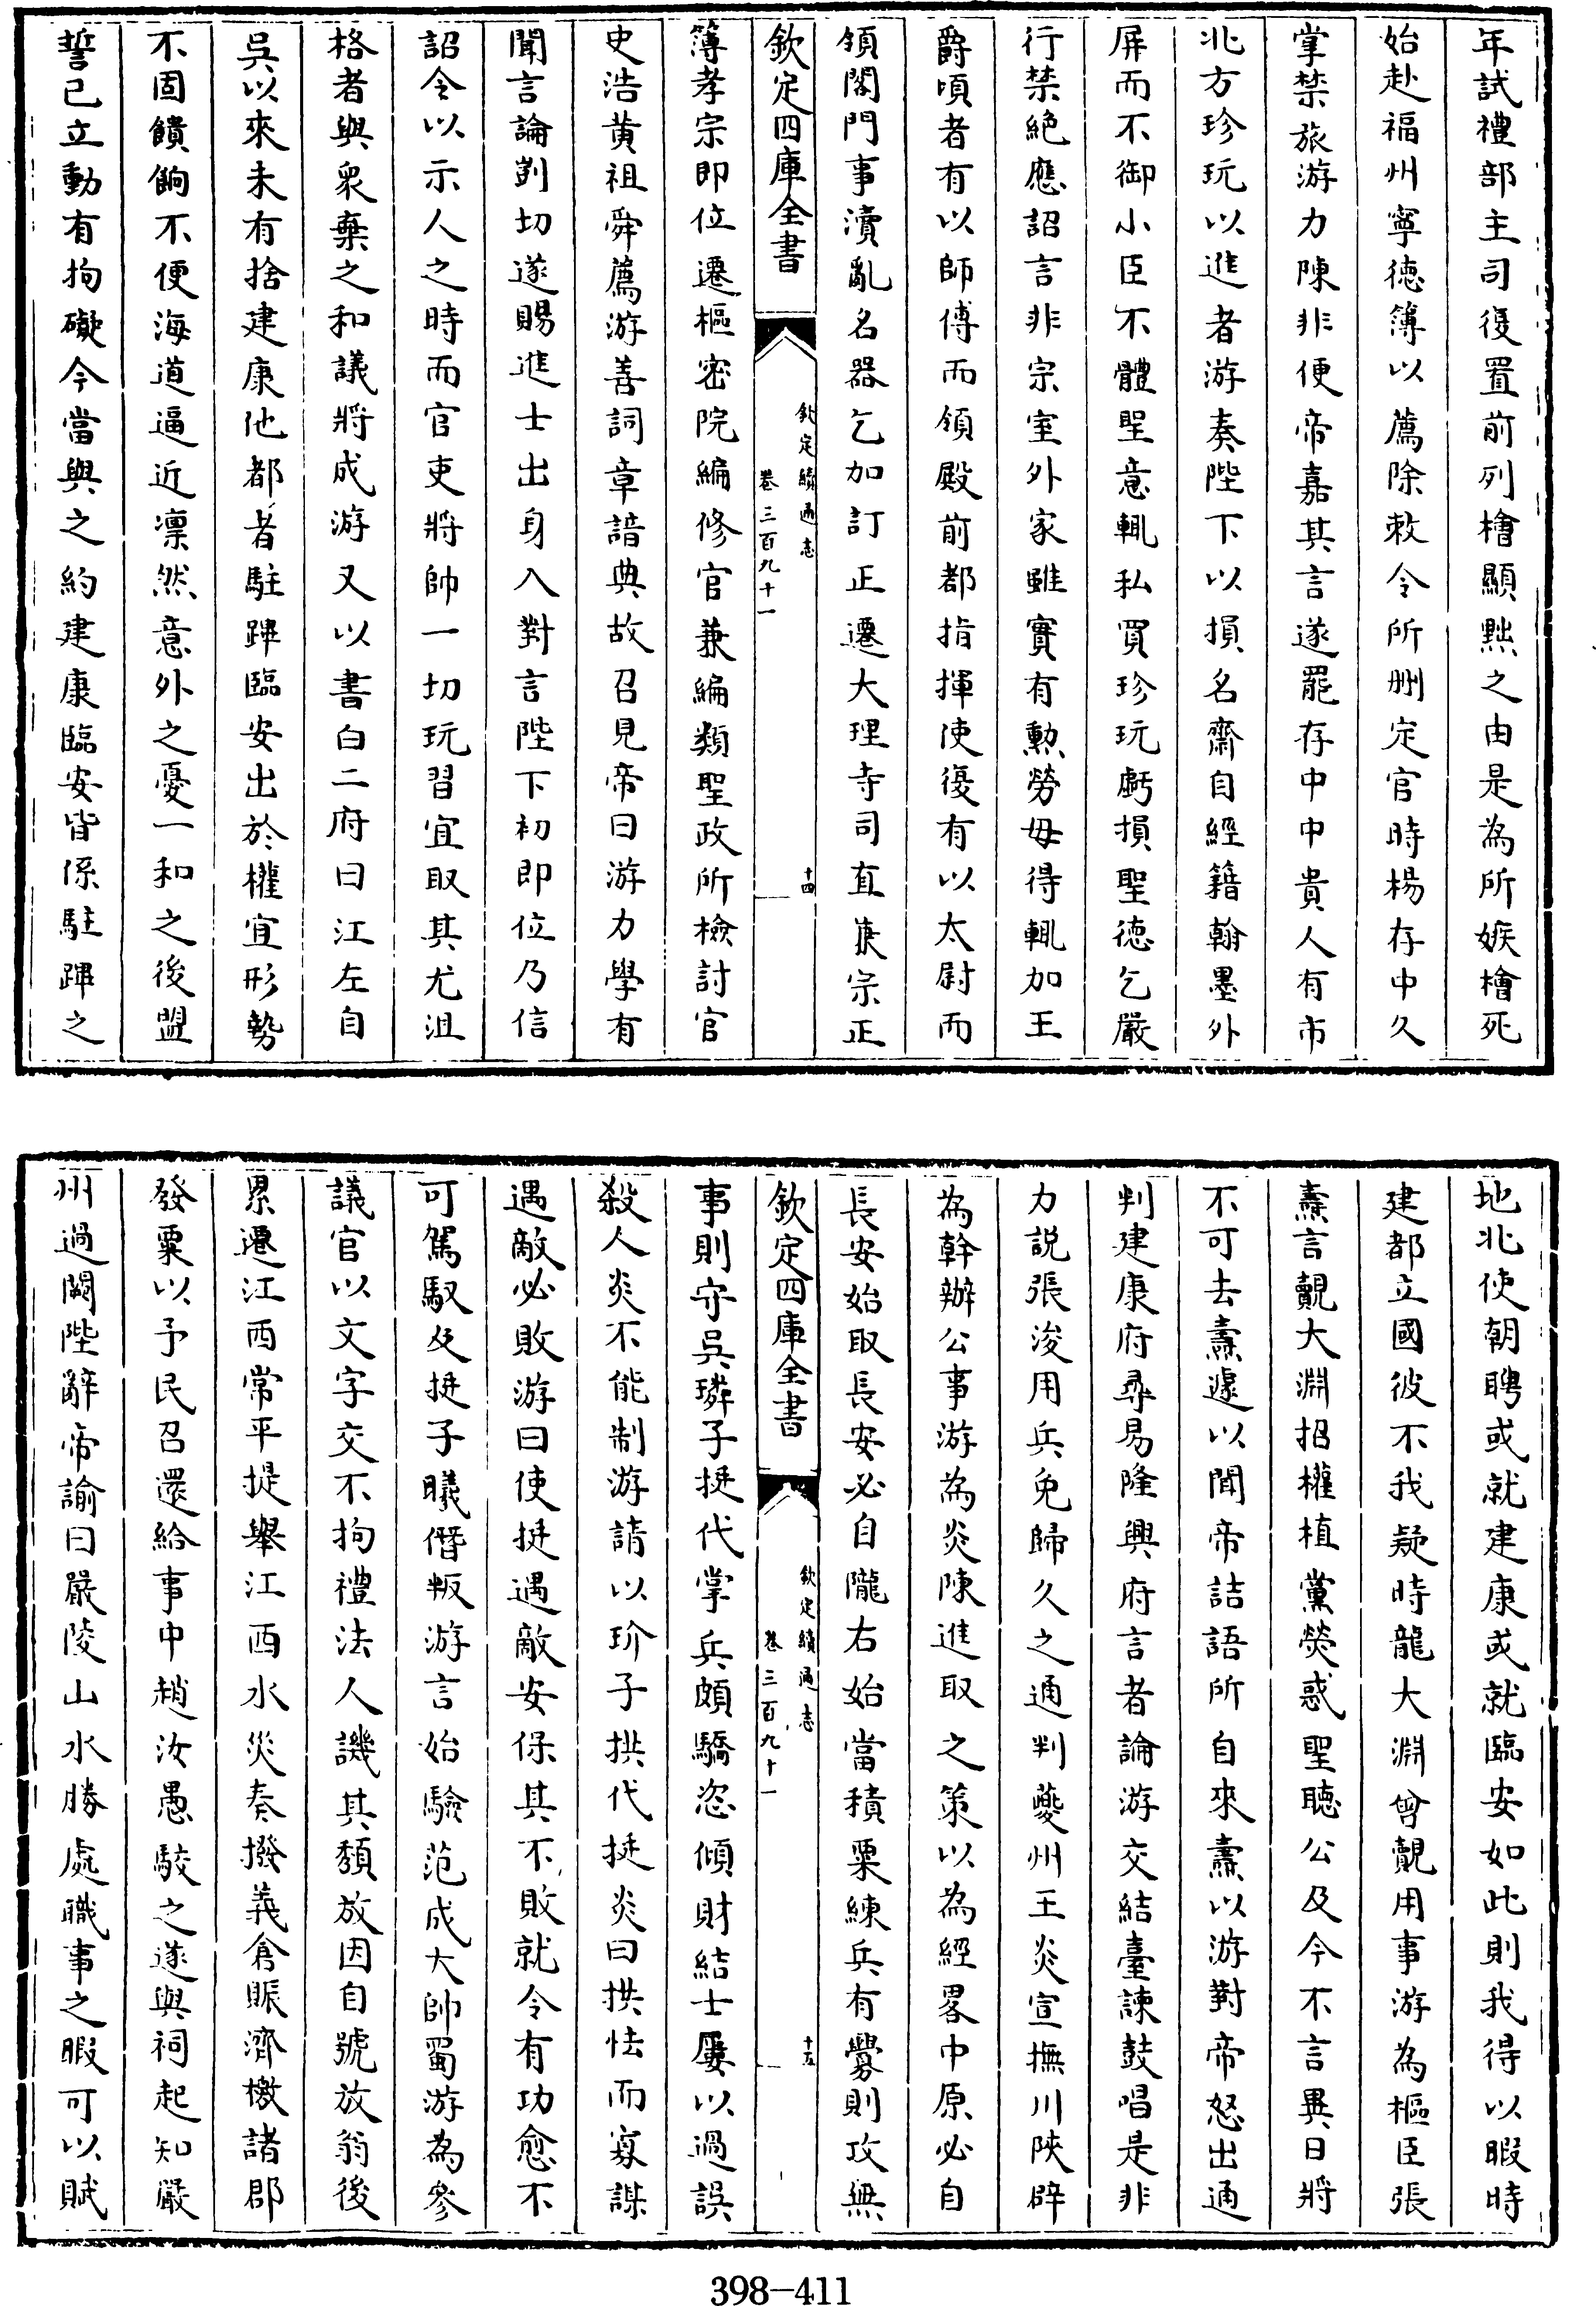 年試禮部主司復置前列檜顯黜之由是為所嫉檜死
始赴福州寧徳簿以薦除敕令所刪定官時楊存中久
掌禁旅游力陳非便帝嘉其言遂罷存中中貴人有市
北方珍玩以進者游奏陛下以損名齋自經籍翰墨外
屏而不御小臣不體聖意輒私買珍玩虧損聖徳乞嚴
行禁絶應詔言非宗室外家雖實有勲勞毋得輒加王
爵頃者有以師傅而領殿前都指揮使復有以太尉而
領閣門事瀆亂名器乞加訂正遷大理寺司直兼宗正
欽定四庫全書
欽定續通志
卷三百九十一
十四
簿孝宗即位遷樞密院編修官兼編類聖政所檢討官
史浩黄祖舜薦游善詞章諳典故召見帝曰游力學有
聞言論剴切遂賜進士出身入對言陛下初即位乃信
詔令以示人之時而官吏將帥一切玩習宜取其尤沮
格者與衆棄之和議將成游又以書白二府曰江左自
吳以來未有捨建康他都者駐蹕臨安出於權宜形勢
不固饋餉不便海道逼近凛然意外之憂一和之後盟
誓已立動有拘礙今當與之約建康臨安皆係駐蹕之
地北使朝聘或就建康或就臨安如此則我得以暇時
建都立國彼不我疑時龍大淵曾覿用事游為樞臣張
燾言覿大淵招權植黨熒惑聖聽公及今不言異日將
不可去燾遽以聞帝詰語所自來燾以游對帝怒出通
判建康府尋易隆興府言者論游交結臺諫鼓唱是非
力説張浚用兵免歸久之通判夔州王炎宣撫川陝辟
為幹辦公事游為炎陳進取之策以為經畧中原必自
長安始取長安必自隴右始當積粟練兵有釁則攻無
欽定四庫全書
欽定續通志
卷三百九十一
十五
事則守吳璘子挺代掌兵頗驕恣傾財結士屢以過誤
殺人炎不能制游請以玠子拱代挺炎曰拱怯而寡謀
遇敵必敗游曰使挺遇敵安保其不敗就令有功愈不
可駕馭及挺子曦僭叛游言始驗范成大帥蜀游為參
議官以文字交不拘禮法人譏其頽放因自號放翁後
累遷江西常平提舉江西水災奏撥義倉賑濟檄諸郡
發粟以予民召還給事中趙汝愚駮之遂與祠起知嚴
州過闕陛辭帝諭曰嚴陵山水勝處職事之暇可以賦
398-411